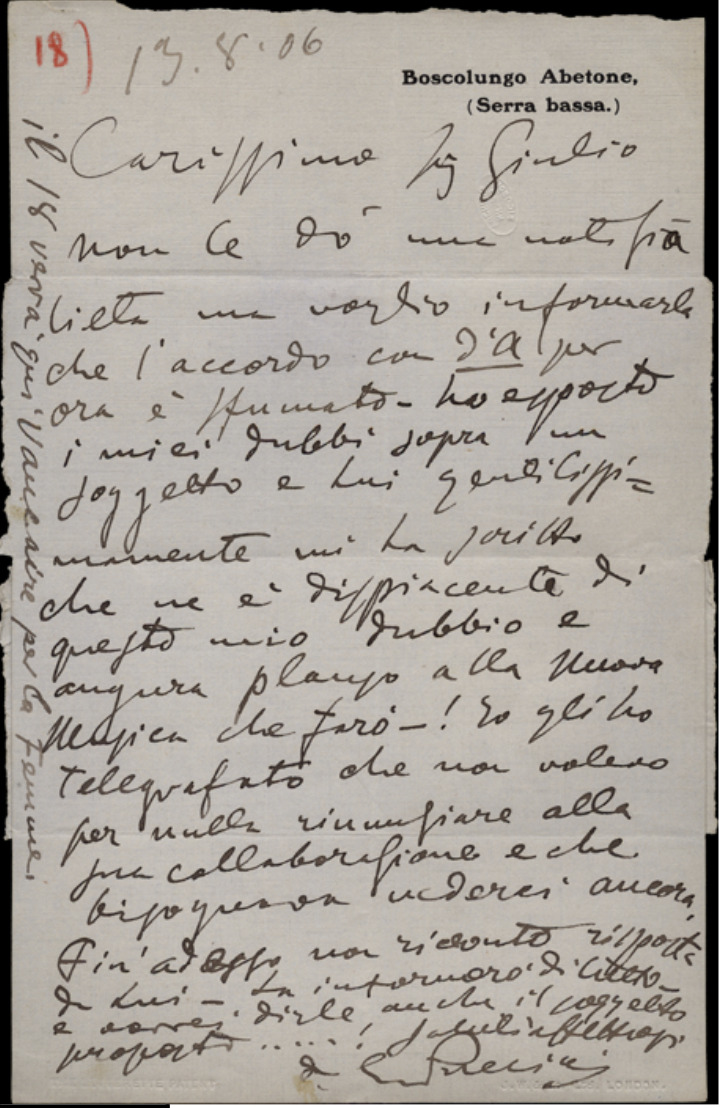 18)
13.8.06
Boscolungo Abetone,
(Serra bassa.)
Carissimo Sig Giulio
non Le dò una notizia
lieta ma voglio informarla
che l'accordo con d'A per
ora è sfumato - ho esposto
i miei dubbi sopra un
soggetto e Lui gentilissi=
mamente mi ha scritto
che ne è dispiacente di
questo mio dubbio e
augura plauso alla nuova
Musica che farò - ! Io gli ho
telegrafato che non volevo
per nulla rinunziare alla
sua collaborazione e che
bisognava vederci ancora,
Fin'adesso non ricevuto risposta
da Lui - La informerò di tutto
e vorrei dirle anche il soggetto
proposto .....! Saluti affettuosi
da G Puccini
il 18 verrà qui Vaucaire per la Femme.
LONDON.